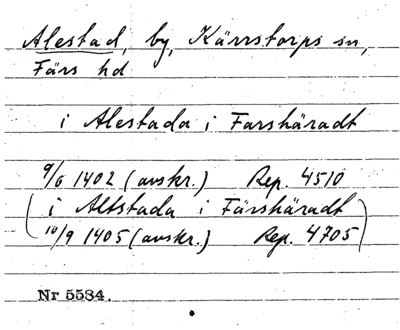 Alestad, by, Kärrstorps sn,
Färs hd
i Alestada i Farshäradt
9/6 1402 (avskr.) Rep. 4510
(i Altstada i Färshäradt
10/9 1405 (avskr.) Rep. 4705)
Nr 5534.